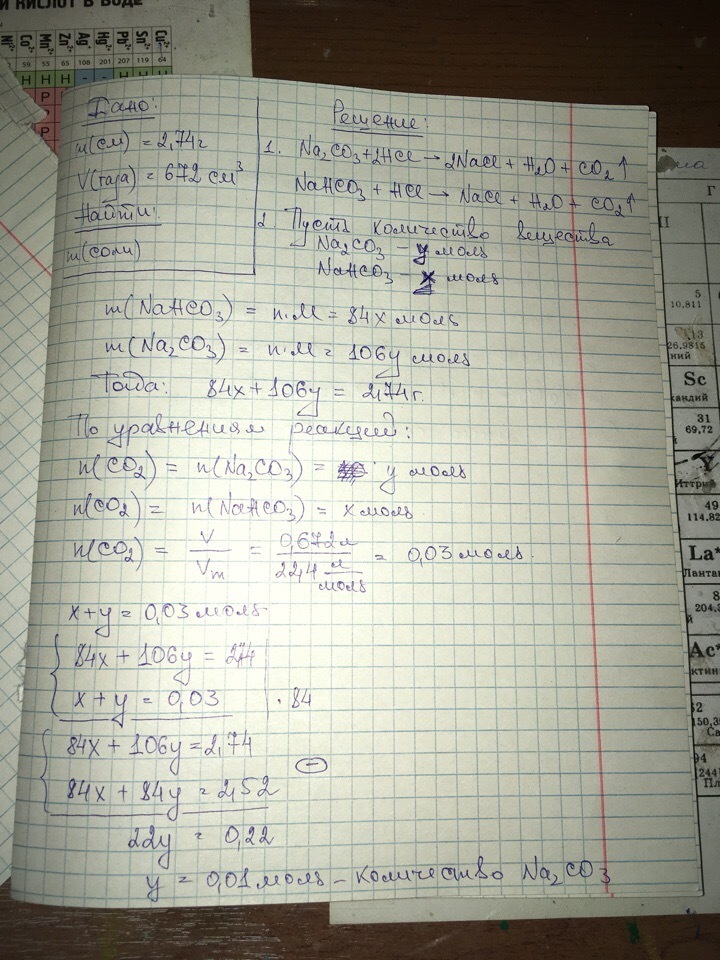 И КИСЛОТ В ВОДЕ
Ni²⁺ Co²⁺ Mn²⁺ Zn²⁺ Ag⁺ Hg²⁺ Pb²⁺ Sn²⁺ Cu²⁺
59 55 65 108 201 207 119 64
Н Н Н - - Н Н Н
Дано:
m(см) = 2,74г
V(газа) = 672 см³
Найти:
m(соли)
Решение:
1. Na₂CO₃+2HCl → 2NaCl + H₂O + CO₂↑
NaHCO₃ + HCl → NaCl + H₂O + CO₂↑
2. Пусть количество вещества
Na₂CO₃ – y моль
NaHCO₃ – x моль
m(NaHCO₃) = n·M = 84x моль
m(Na₂CO₃) = n·M = 106y моль
Тогда: 84x+106y = 2,74г.
По уравнениям реакций:
n(CO₂) = n(Na₂CO₃) = y моль
n(CO₂) = n(NaHCO₃) = x моль
n(CO₂) = V/Vm = 0,672л / 22,4 л/моль = 0,03 моль.
x+y = 0,03 моль
84x + 106y = 2,74
x + y = 0,03 | · 84
84x + 106y = 2,74
84x + 84y = 2,52
22y = 0,22
y = 0,01 моль – количество Na₂CO₃
Г
II
5
10,811
13
26,9815
ний
Sc
кандий
31
69,72
Y
Иттрий
49
114,82
La*
Лантан
Ac*
ктин